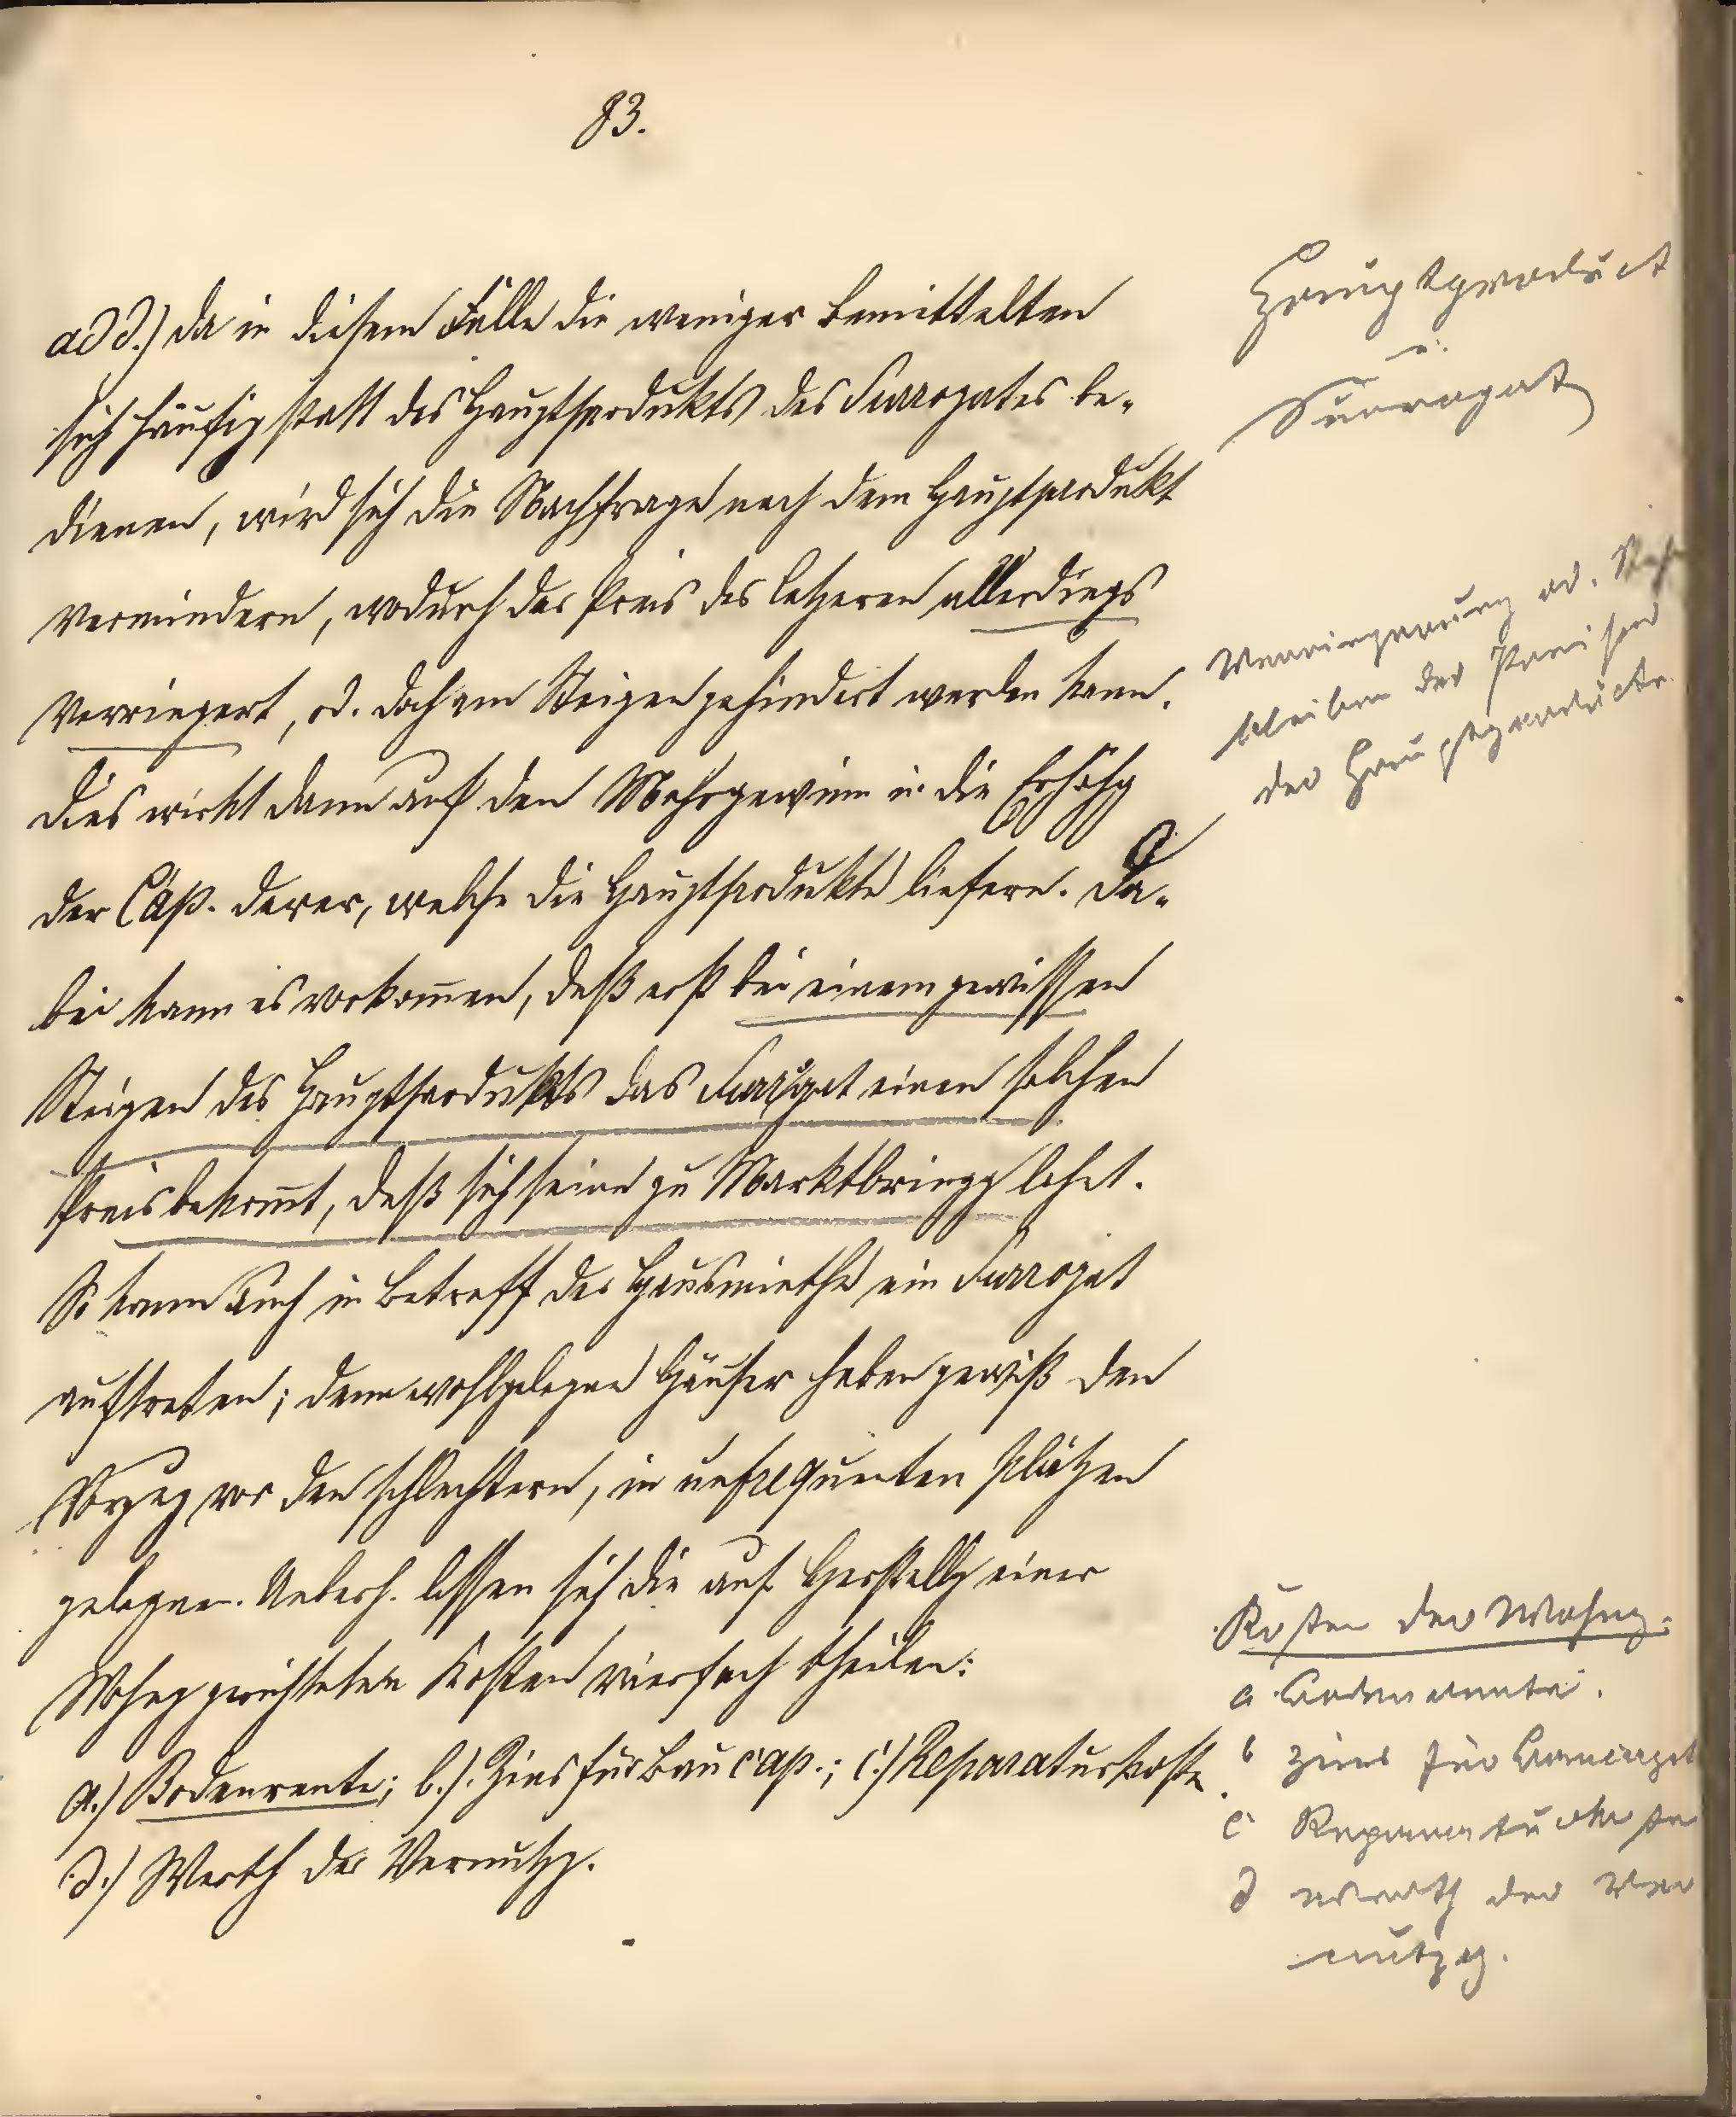 83.
ad d.) Da in diesem Falle die weniger bemittelten
sich häufig statt des Hauptprodukts des Surrogates be-
dienen, wird sich die Nachfrage nach dem Hauptprodukt
vermindern, wodurch der Preis des letzeren allerdings
verringert, od. doch am Steigen gehindert werden kann.
Dies wirkt dann auf den Mehrgewinn u. die Erhöhg
der Cap. derer, welche die Hauptprodukte liefern. Da-
bei kann es vorkom̄en, daß erst bei einem gewissen
Steigen des Hauptprodukts das Surrogat einen solchen
Preis bekom̄t, daß sich seine zu Marktbringg lohnt.
So kann auch in Betreff der Hausmiethe ein Surrogat
auftreten; denn wohlgelegne Häuser haben gewiß den
Vorzug vor den schlechtern, in unfrequenten Plätzen
gelegnen. Ueberh. lassen sich die auf Herstellg einer
Wohng gerichteten Kosten vierfach theilen:
a.) Bodenrente; b.) Zins für Baucap.; c.) Reparaturkosten
d.) Werth der Vernutzg.
Hauptproduct
u.
Surrogat
Verringerung od.
bleiben der Preise
der Hauptproducte
Kosten der Wohng:
a. Bodenrente.
b Zins für Baucapit
c Reparaturkosten
d Werth der Ver
nutzg.